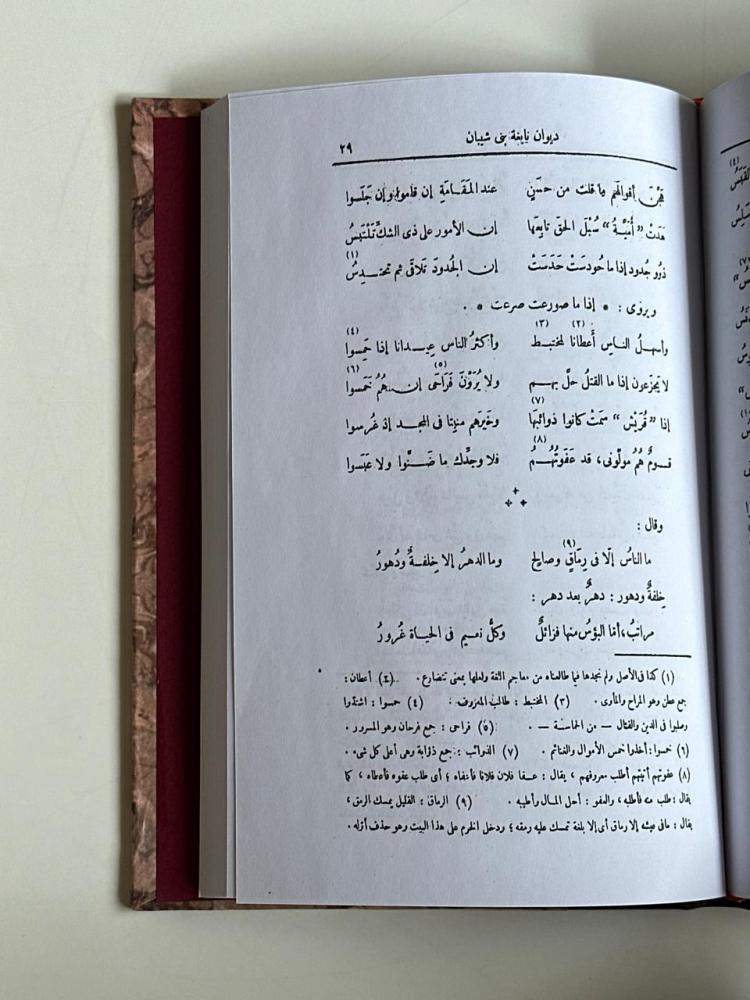 ديوان نابغة بنى شيبان ٢٩
أقوالهم ما قلت من حسَنٍ عند المَقَامَةِ إن قاموا وإن جَلَسوا
هَدَتْ "أُمَيَّةُ" سُبْلَ الحقِ تابعَها إن الأمور على ذى الشك تَلْتَبسُ
ذوو جدود إذا ما حُودسَتْ حَدَسَتْ إن الجُدودَ تَلاقَى ثم تحتدِسُ (١)
ويروى : * إذا ما صورعت صرعت * .
وأسهلُ الناسِ أعطانًا (٢) لمختبط (٣) وأكثرُ الناس عِيدانا إذا حَمِسوا (٤)
لا يجزَعون إذا ما القتلُ حلَّ بهم ولا يُرَوْنَ فَرَاحَى (٥) إن هُمُ خَمَسوا (٦)
إذا "قُرَيْش" سَمَتْ كانوا ذوائبَها (٧) وخَيرَهم منبِتا فى المجد إذ غُرسوا
قومٌ هُمُ مولونى، قد عَفَوتُهُمُ (٨) فلا وجَدِّك ما ضَنُّوا ولا عبَسوا
وقال :
ما الناسُ إلّا فى رِمَاقٍ (٩) وصالح وما الدهرُ إلا خِلفةٌ ودُهورُ
خِلفةٌ ودهور : دهرٌ بعد دهر :
مراتبُ، أمّا البؤسُ منها فزائلٌ وكلُّ نعيم فى الحياة غُرورُ
(١) كذا فى الأصل ولم نجدها فيما طالعناه من معاجم اللغة ولعلها بمعنى تتضارع . (٢) أعطان :
جمع عطن وهو المراح والمأوى . (٣) المختبط : طالب المعروف . (٤) حمسوا : اشتدّوا
وصلبوا فى الدين والقتال — من الحماسة — . (٥) فراحى : جمع فرحان وهو المسرور .
(٦) خمسوا : أخذوا خمس الأموال والغنائم . (٧) الذوائب : جمع ذؤابة وهى أعلى كل شىء .
(٨) عفوتهم أتيتهم أطلب معروفهم ، يقال : عفا فلان فلانا فأعفاه ؛ أى طلب عفوه فأعطاه ، كما
يقال : طلب منه فأطلبه ، والعفو : أحل المال وأطيبه . (٩) الرماق : القليل يمسك الرمق ،
يقال : ما فى عيشه إلا رماق أى إلا بلغة تمسك عليه رمقه ؛ ودخل الخرم على هذا البيت وهو حذف أوّله .